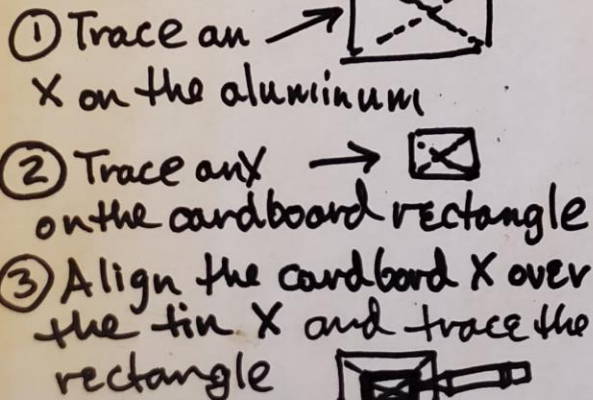 ① Trace an
X on the aluminum
② Trace an X
on the cardboard rectangle
③ Align the cardbord X over
the tin X and trace the
rectangle